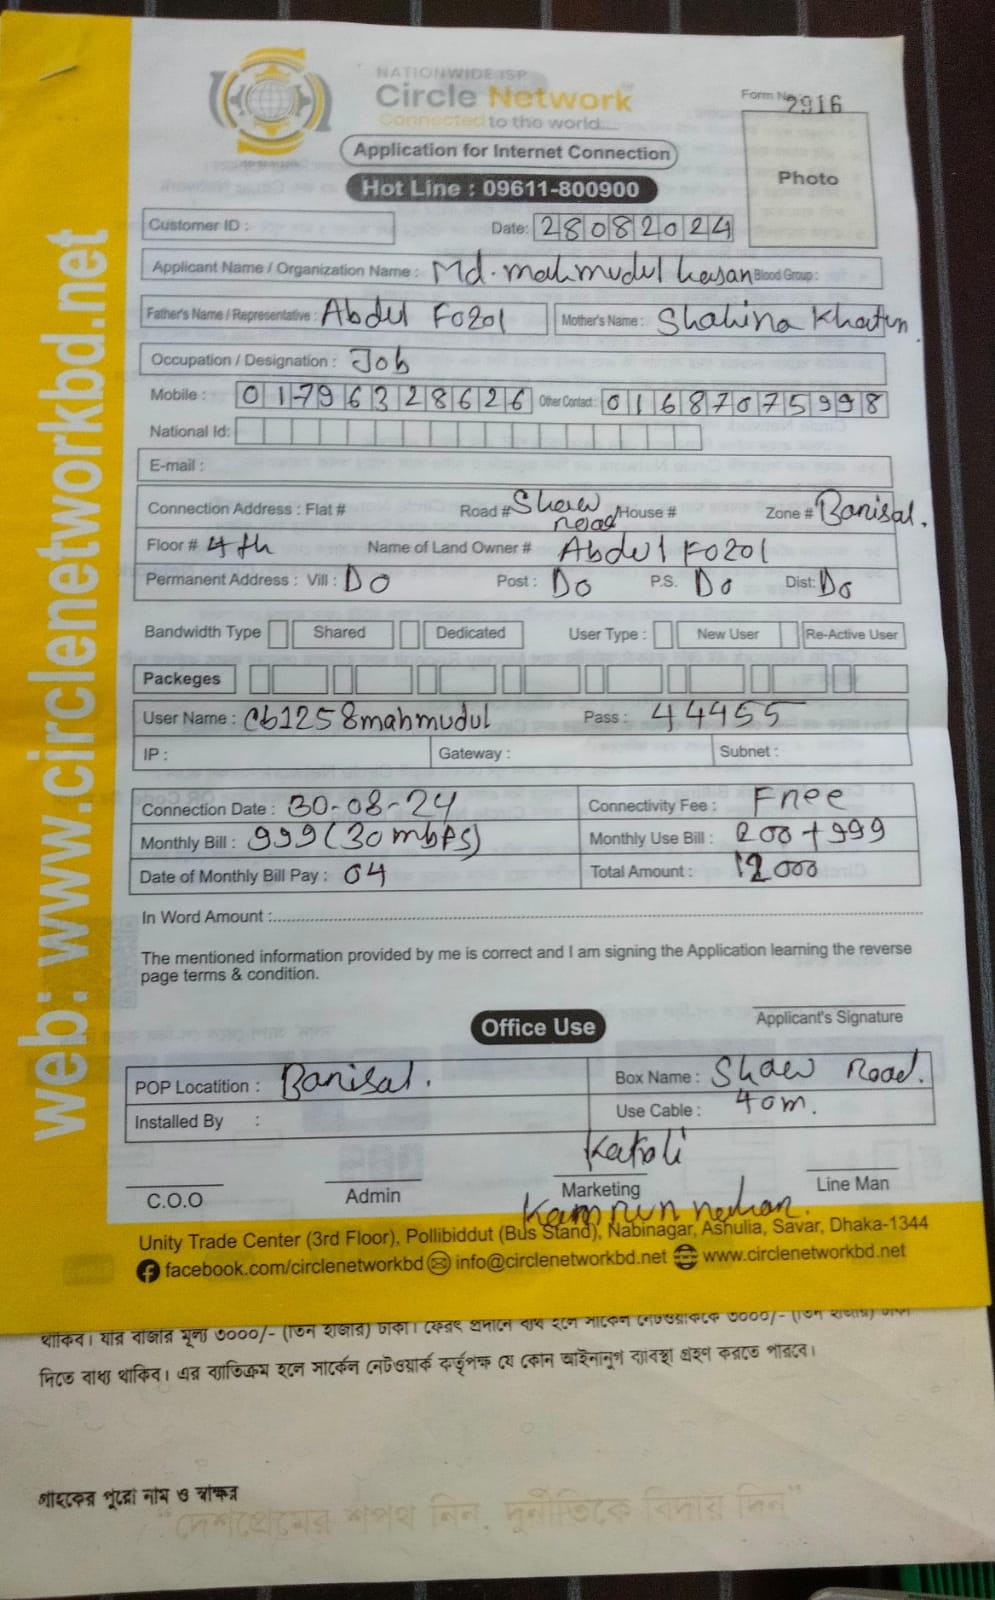 NATIONWIDE ISP
Circle Network
Connected to the world...
Form No 2916
Application for Internet Connection
Photo
Hot Line : 09611-800900
Customer ID :
Date: 28082024
Applicant Name / Organization Name : Md. Mahmudul hasan Blood Group :
Father's Name / Representative : Abdul Fozol Mother's Name : Shahina Khatun
Occupation / Designation : Job
Mobile : 01796328626 Other Contact : 01687075998
National Id:
E-mail :
Connection Address : Flat # Road # Shaw road House # Zone # Barisal.
Floor # 4th Name of Land Owner # Abdul Fozol
Permanent Address : Vill : Do Post : Do P.S. Do Dist: Do
Bandwidth Type Shared Dedicated User Type : New User Re-Active User
Packeges
User Name : cb1258mahmudul Pass : 44455
IP : Gateway : Subnet :
Connection Date : 30-08-24 Connectivity Fee : Free
Monthly Bill : 999 (30 mbps) Monthly Use Bill : 200 + 999
Date of Monthly Bill Pay : 04 Total Amount : 12000
In Word Amount :
The mentioned information provided by me is correct and I am signing the Application learning the reverse
page terms & condition.
Applicant's Signature
Office Use
POP Locatition : Barisal. Box Name : Shaw Road.
Installed By : Use Cable : 40m.
Kakoli
C.O.O Admin Marketing Line Man
Kamrun nahar.
Unity Trade Center (3rd Floor), Pollibiddut (Bus Stand), Nabinagar, Ashulia, Savar, Dhaka-1344
facebook.com/circlenetworkbd info@circlenetworkbd.net www.circlenetworkbd.net
web: www.circlenetworkbd.net
থাকিব। যার বাজার মূল্য ৩০০০/- (তিন হাজার) টাকা। ফেরৎ প্রদানে ব্যর্থ হলে সার্কেল নেটওয়ার্ককে ৩০০০/- (তিন হাজার) টাকা
দিতে বাধ্য থাকিব। এর ব্যতিক্রম হলে সার্কেল নেটওয়ার্ক কর্তৃপক্ষ যে কোন আইনানুগ ব্যবস্থা গ্রহণ করতে পারবে।
গ্রাহকের পুরো নাম ও স্বাক্ষর
"দেশপ্রেমের শপথ নিন, দুর্নীতিকে বিদায় দিন"